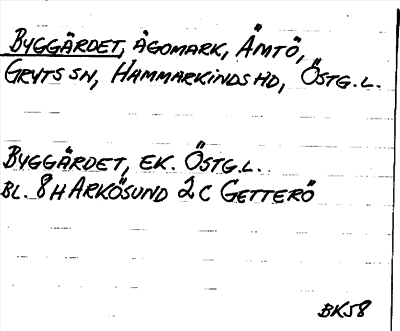 BYGGÄRDET, ÄGOMARK, ÄMTÖ,
GRYTS SN, HAMMARKINDS HD, ÖSTG.L.
BYGGÄRDET, EK. ÖSTG.L.
BL. 8 H ARKÖSUND 2 C GETTERÖ
BK58